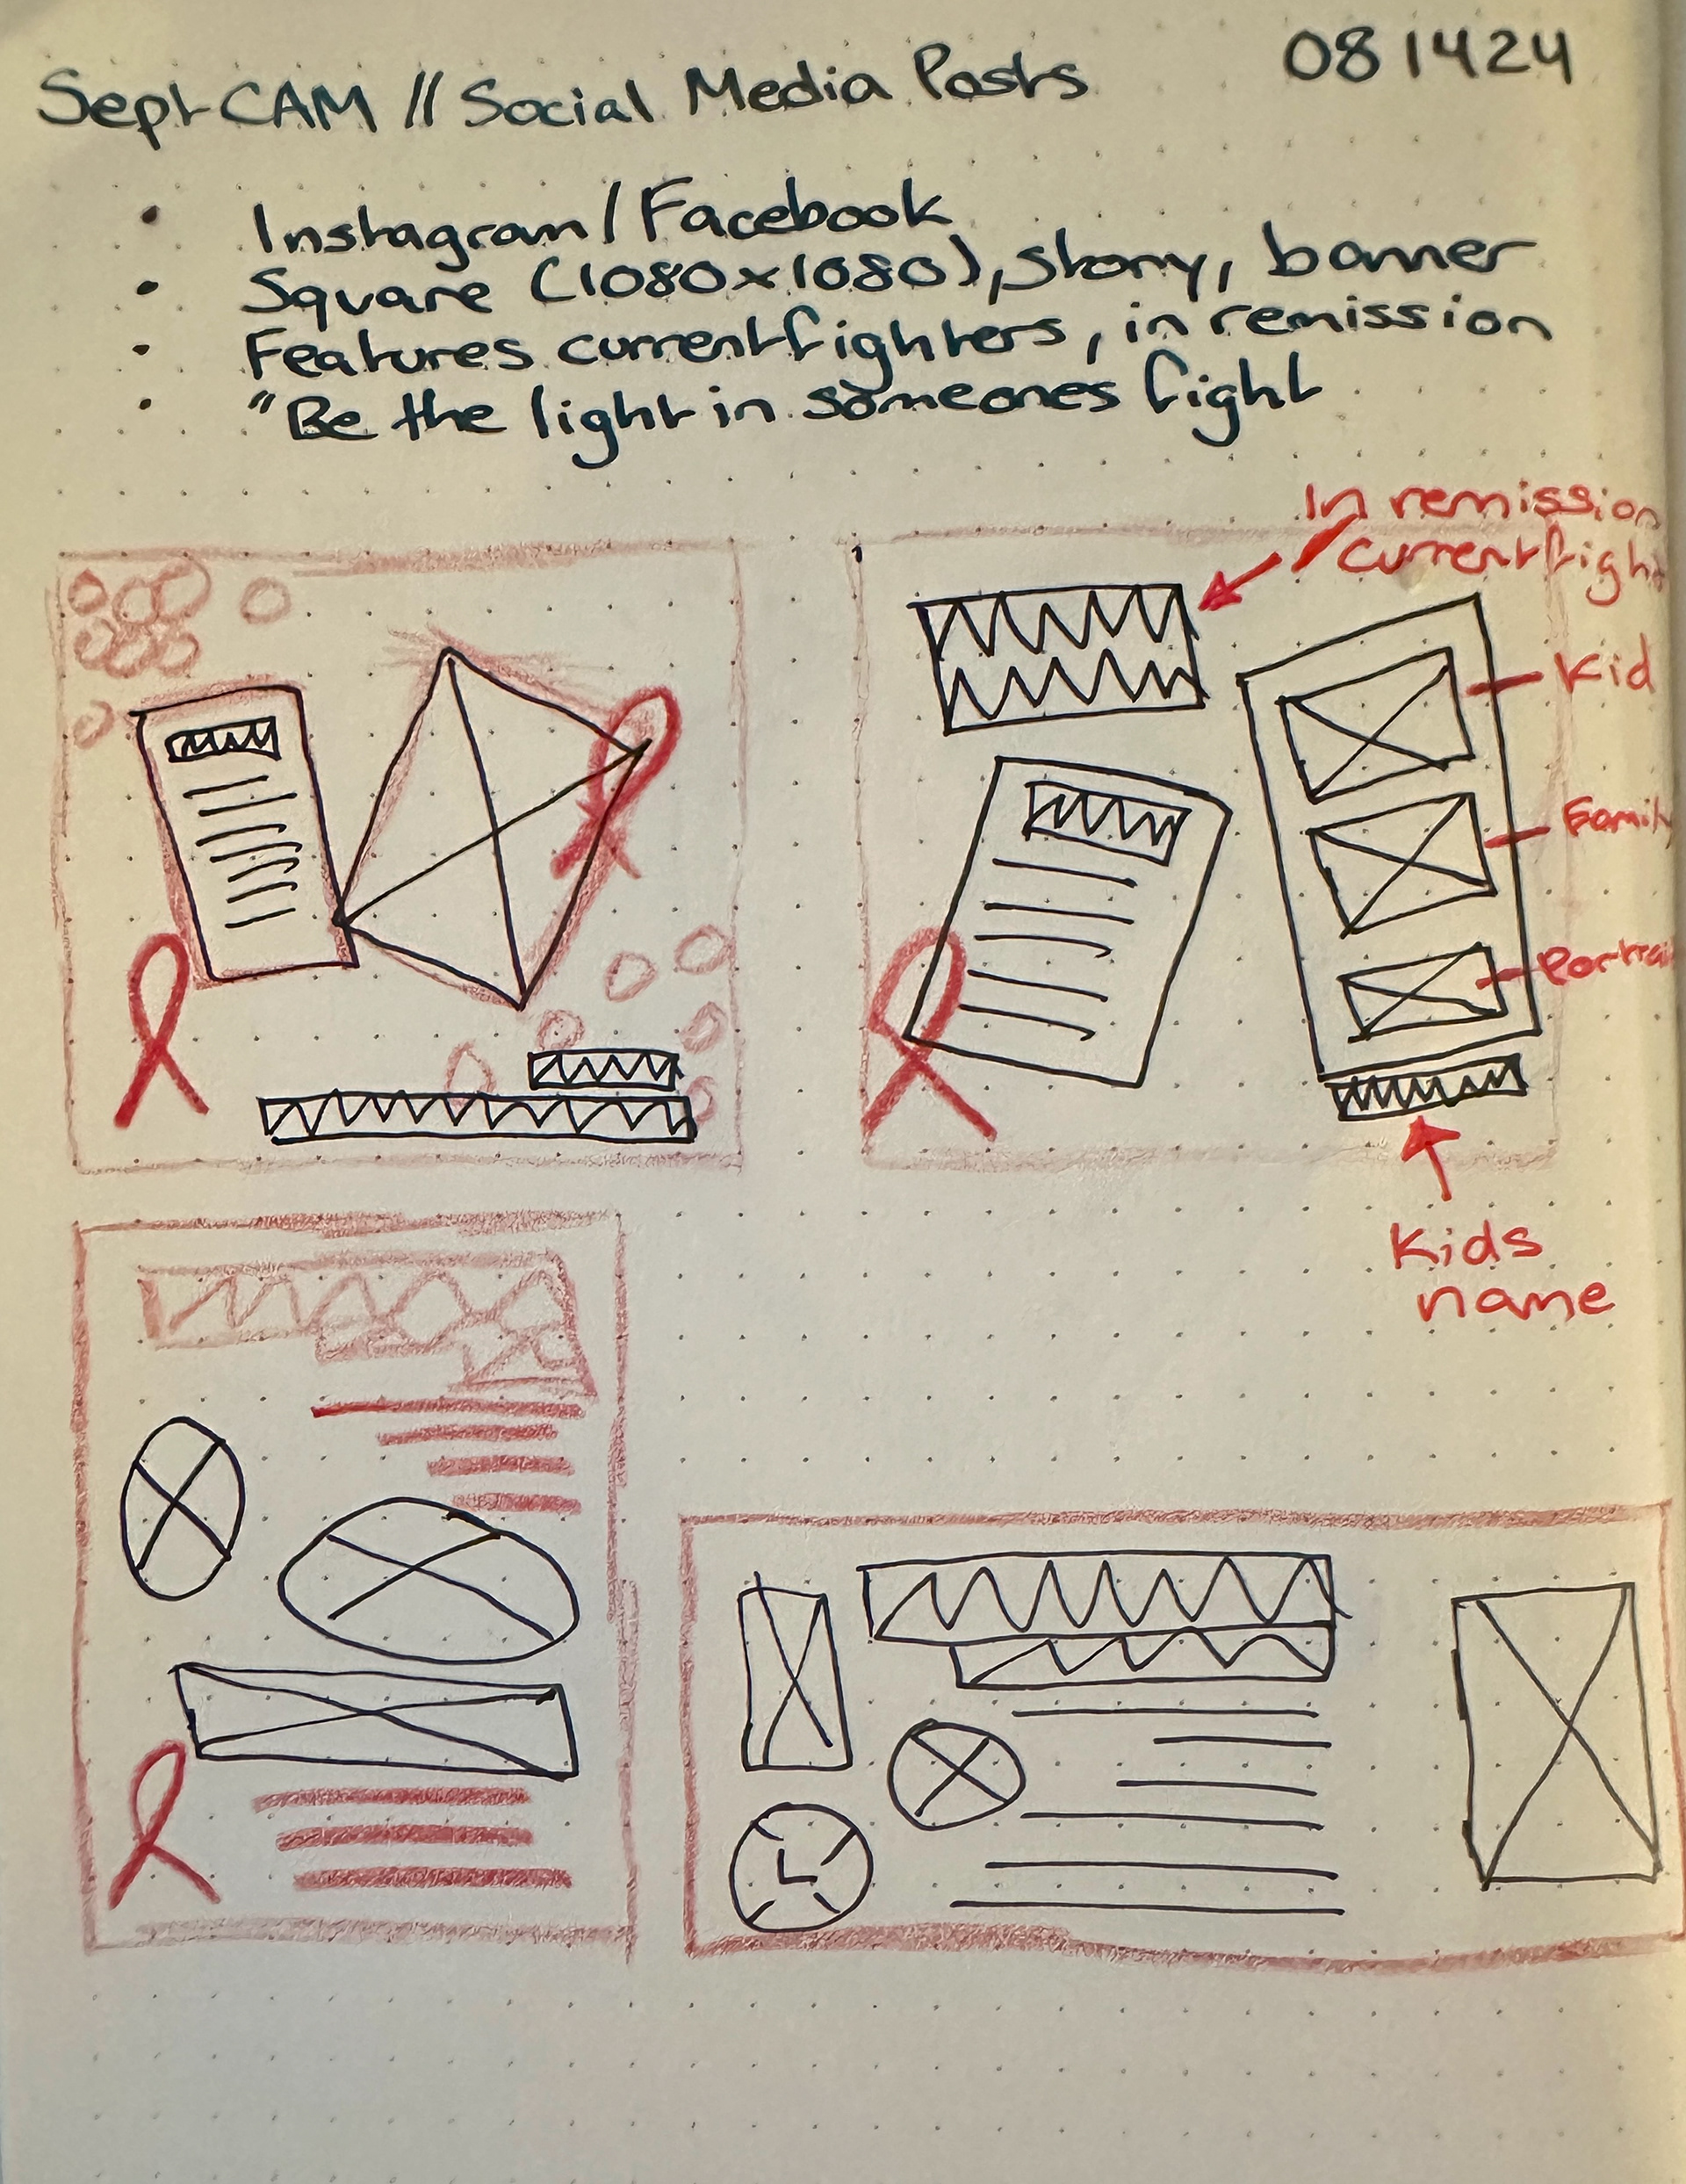 Sept CAM // Social Media Posts 081424
• Instagram / Facebook
• Square (1080x1080), story, banner
• Features current fighters, in remission
• "Be the light in someones fight
In remission
current fight
Kid
Family
Portrait
Kids
name